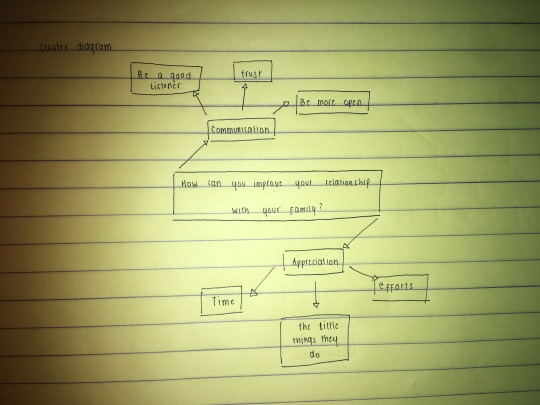 Cluster diagram
Be a good
Listener
trust
Be more open
Communication
How can you improve your relationship
with your Family?
Appreciation
Time
efforts
the little
things they
do